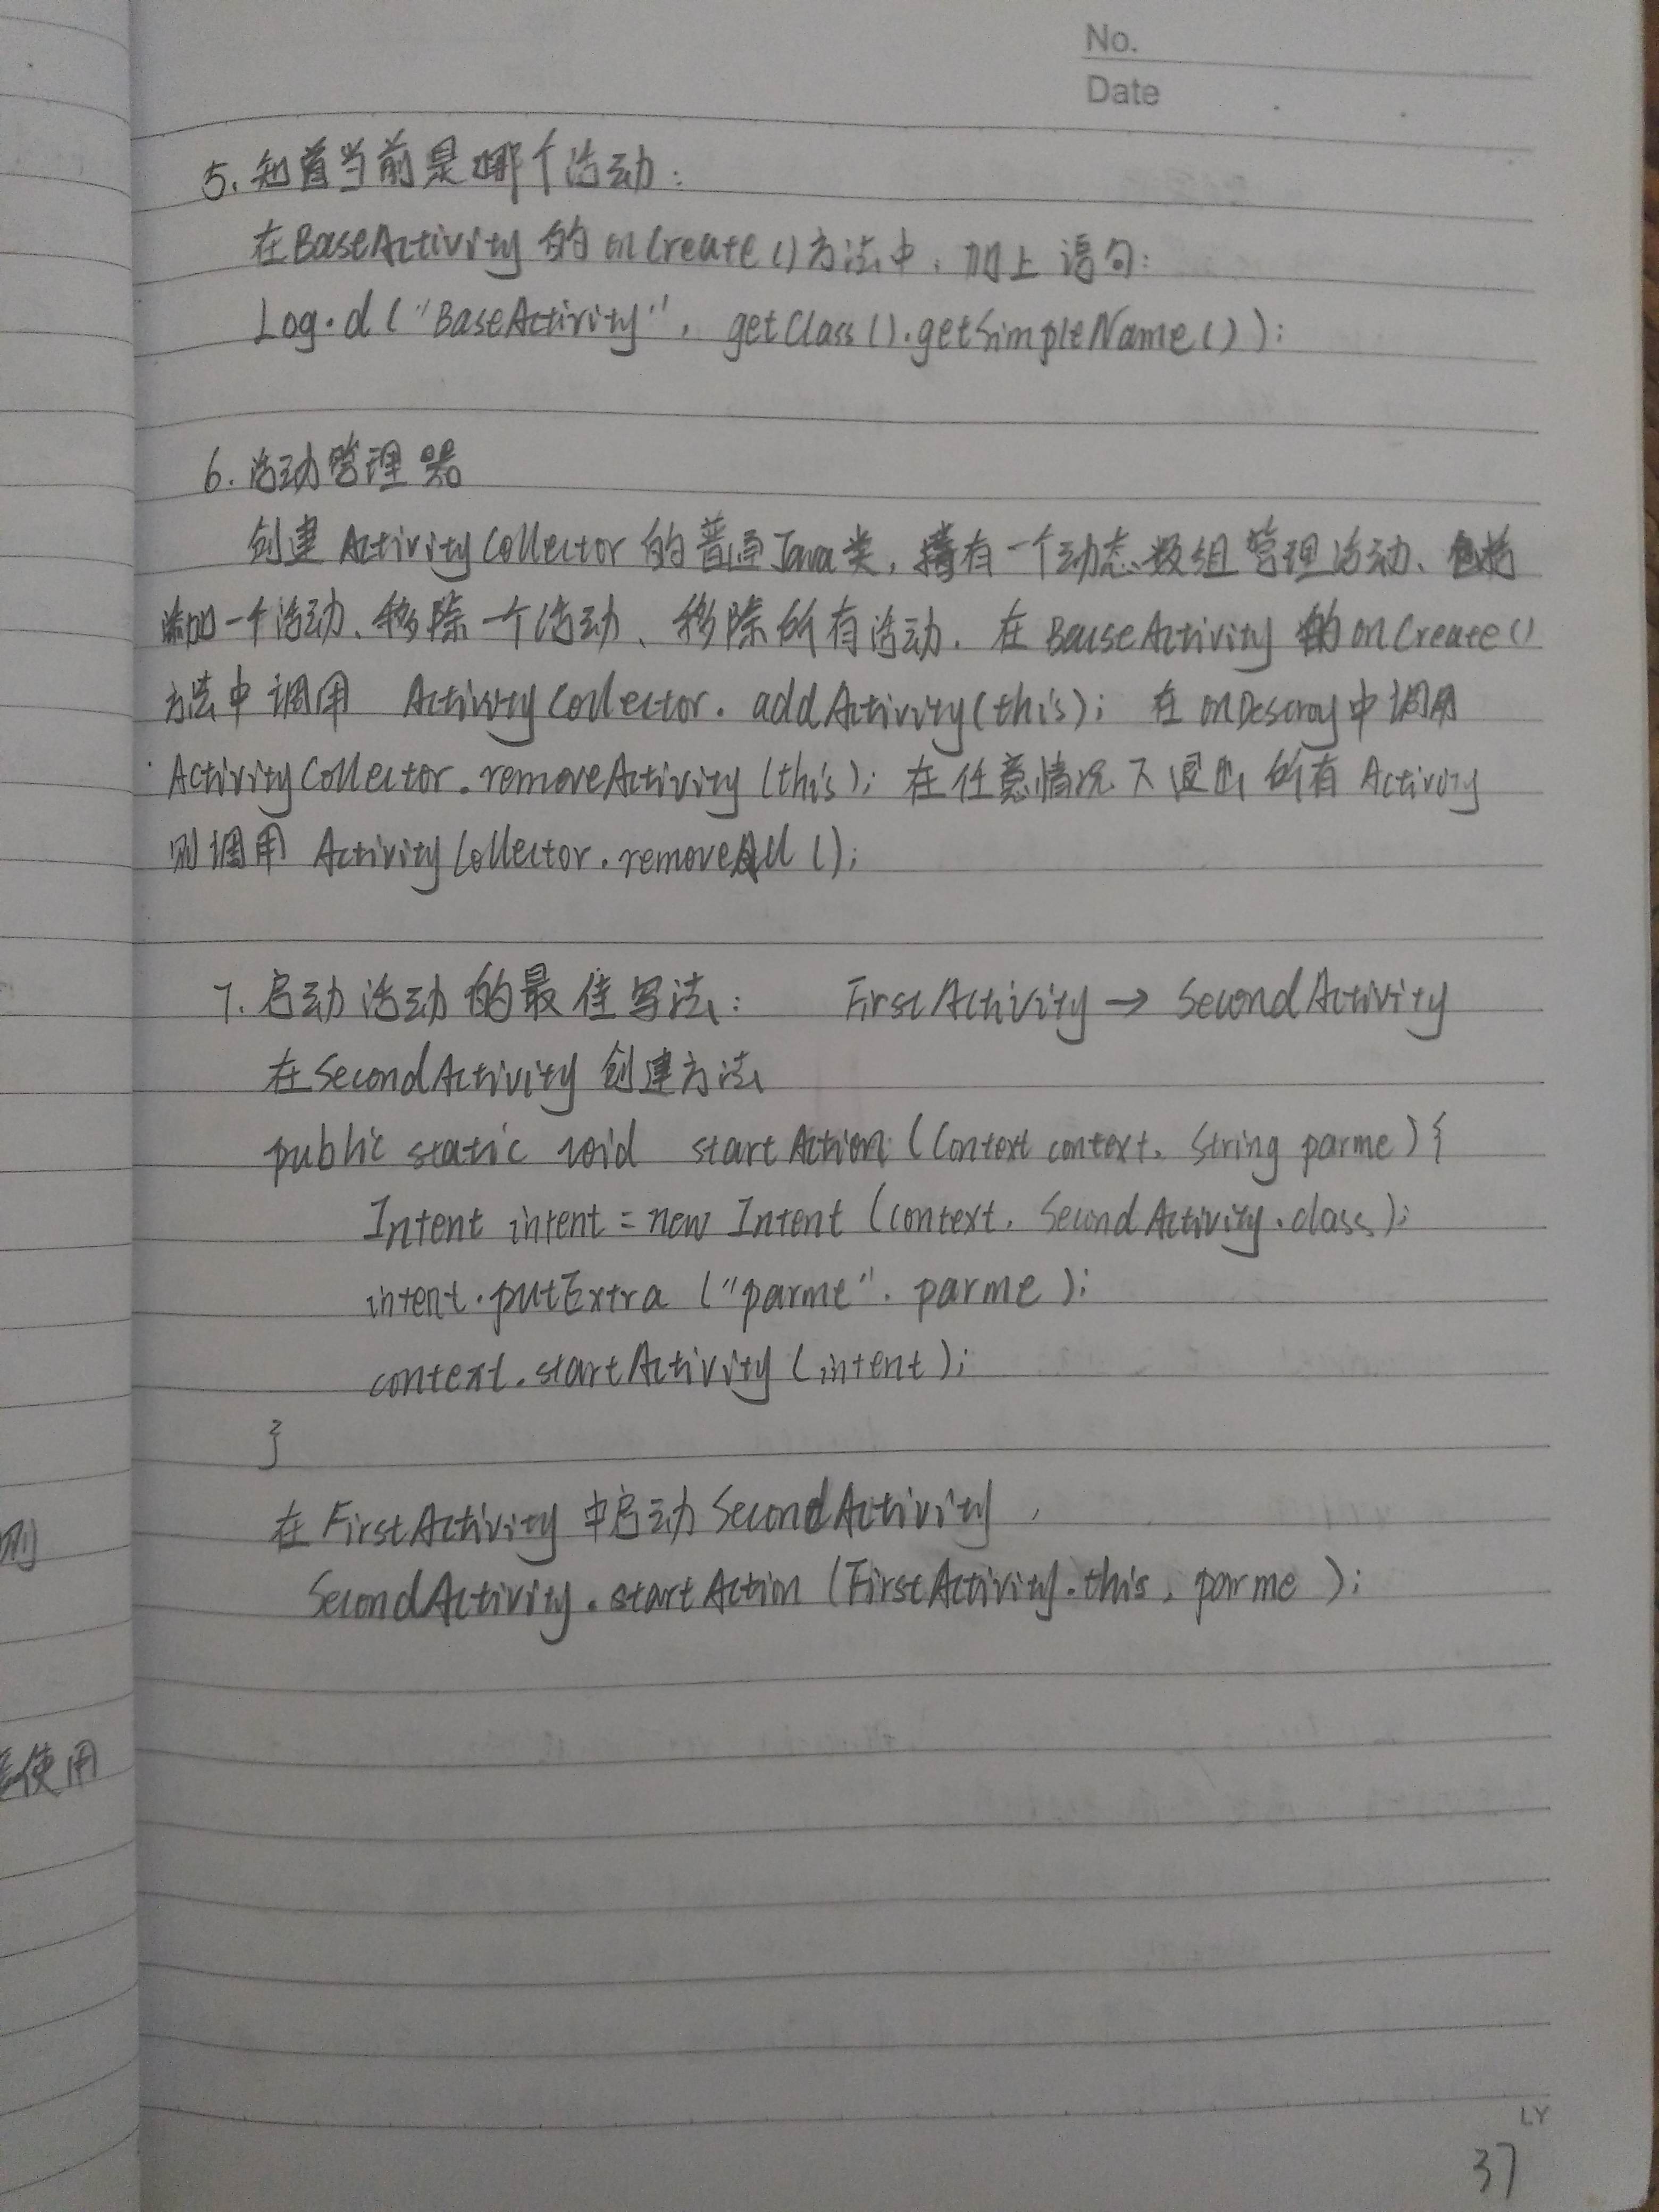 No.
Date
5. 知道当前是哪个活动:
在BaseActivity 的 onCreate()方法中, 加上语句:
Log.d("BaseActivity", getClass().getSimpleName());
6. 活动管理器
创建 ActivityCollector 的普通Java类, 拥有一个动态数组管理活动、包括
添加一个活动、移除一个活动、移除所有活动. 在 BaseActivity 的 onCreate()
方法中调用 ActivityCollector.addActivity(this); 在 onDestroy中调用
ActivityCollector.removeActivity(this); 在任意情况下退出所有 Activity
则调用 ActivityCollector.removeAll();
7. 启动活动的最佳写法: FirstActivity → SecondActivity
在SecondActivity 创建方法
public static void startAction (Context context, String parme){
Intent intent = new Intent (context, SecondActivity.class);
intent.putExtra ("parme", parme);
context.startActivity (intent);
}
在 FirstActivity 中启动 SecondActivity,
SecondActivity.startAction (FirstActivity.this, parme);
则
使用
LY
37